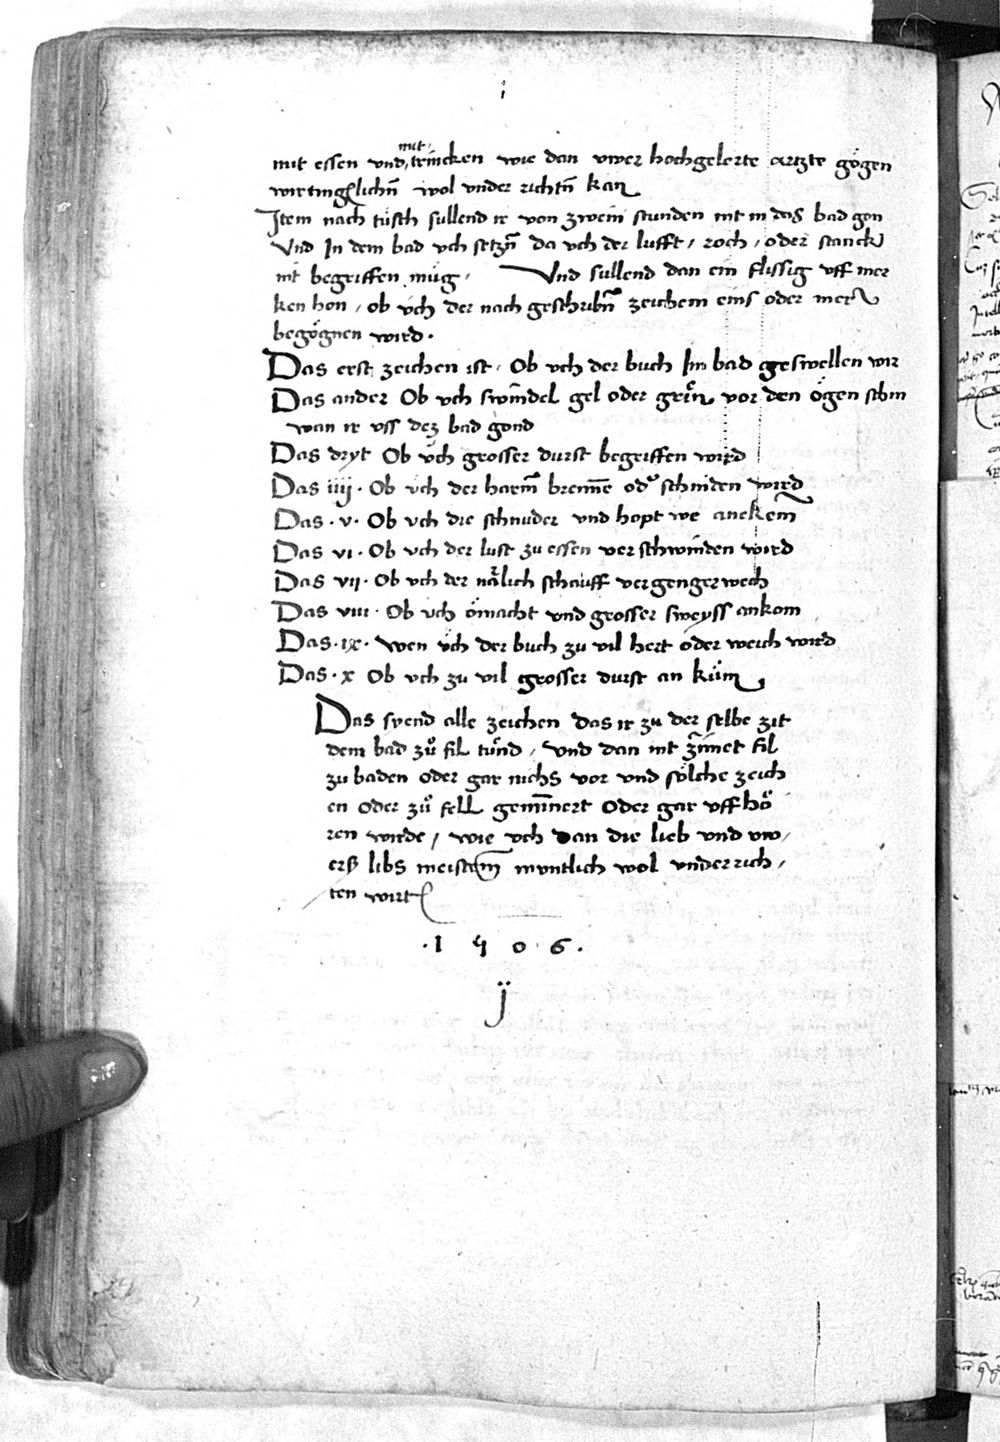 i
mit essen vnd mit trincken wie dan vwer hochgelerte artzte gögen
wol vnder richtn̄ kan
Item nach tüsch sullend ir von zwein stunden nit in das bad gon
Vnd In dem bad vch setzn̄ da vch der lufft / roch / oder stanck
nit begriffen müg / Vnd sullend dan ein flissig vff mer
ken hon / ob vch der nach geschribn̄ zeichem eins oder mer
begögnen wird ·
Das erst zeichen ist · Ob vch der buch Im bad geswellen wir
Das ander Ob vch swindel gel oder grün vor den ögen schin
wan ir vss dez bad gond
Das dryt Ob vch grosser durst begriffen wird
Das iiij · Ob vch der harm̄ breñe od' schniden wird
Das · v · Ob vch die schnuder vnd hopt we anekem̄
Das vi · Ob vch der lust zu essen verschwinden wird
Das vii · Ob vch der schlauff vergengerwech
Das viii · Ob vch ömacht vnd grosser sweyss ankom
Das · ix · wen vch der buch zu vil hert oder weich wird
Das · x Ob vch zu vil grosser durst an küm
Das syend alle zeichen das ir zu der selbe zit
dem bad zů fil tůnd / vnd dan nit fil
zu baden oder gar nichs vor vnd sölche zeich
en oder zů fell gemīnert oder gar vffhö
ren wirde / wie vch dan die lieb vnd vw /
erß libs muntlich wol vnderrich /
ten wirt
· 1 5 0 6 ·
ij